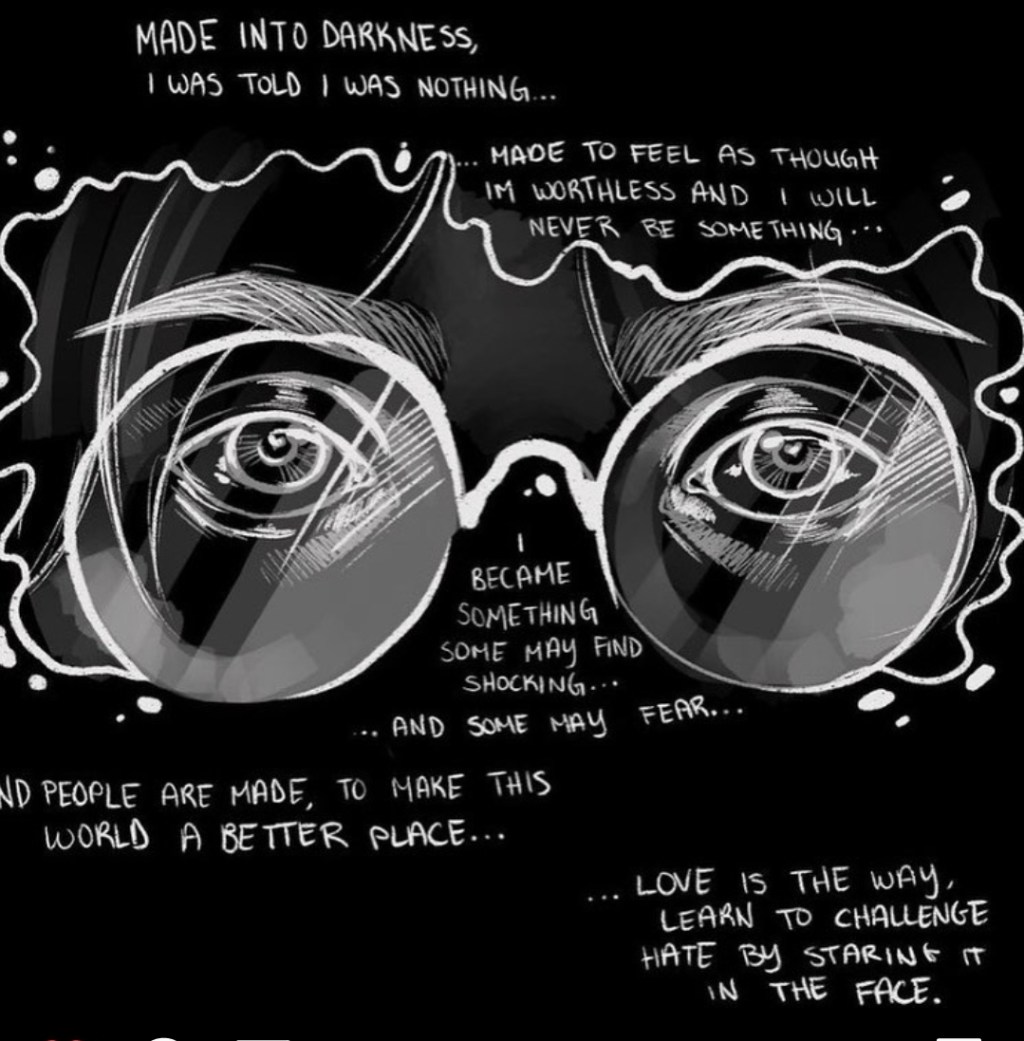 MADE INTO DARKNESS,
I WAS TOLD I WAS NOTHING...
... MADE TO FEEL AS THOUGH
IM WORTHLESS AND I WILL
NEVER BE SOMETHING...
I
BECAME
SOMETHING
SOME MAY FIND
SHOCKING...
... AND SOME MAY FEAR...
ND PEOPLE ARE MADE, TO MAKE THIS
WORLD A BETTER PLACE...
... LOVE IS THE WAY,
LEARN TO CHALLENGE
HATE BY STARING IT
IN THE FACE.